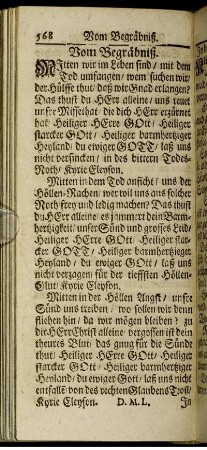 568 Vom Begräbniß.
Vom Begräbniß.
MItten wir im Leben sind / mit dem
Tod umfangen / wem suchen wir /
der Hülffe thut / daß wir Gnad erlangen?
Das thust du HErr alleine / uns reuet
unsre Missethat / die dich HErr erzürnet
hat / Heiliger HErre GOtt / Heiliger
starcker GOtt / Heiliger barmhertziger
Heyland / du ewiger GOTT / laß uns
nicht versincken / in des bittern Todes-
Noth / Kyrie Eleyson.
Mitten in dem Tod anficht / uns der
Höllen-Rachen / wer wil uns aus solcher
Noth frey und ledig machen? Das thust
du HErr alleine / es jammert dein Barm-
hertzigkeit / unser Sünd und grosses Leid /
Heiliger HErre GOtt / Heiliger star-
cker GOTT / Heiliger barmhertziger
Heyland / du ewiger GOtt / laß uns
nicht verzagen / für der tieffsten Höllen-
Glut / Kyrie Eleyson.
Mitten in der Höllen Angst / unsre
Sünd uns treiben / wo sollen wir denn
fliehen hin / da wir mögen bleiben? zu
dir HErr Christ alleine / vergossen ist dein
theures Blut / das gnug für die Sünde
thut / Heiliger HErre GOtt / Heiliger
starcker GOtt / Heiliger barmhertziger
Heyland / du ewiger Gott / laß uns nicht
entfallē / von des rechten Glaubens Trost /
Kyrie Eleyson. D. M. L. In